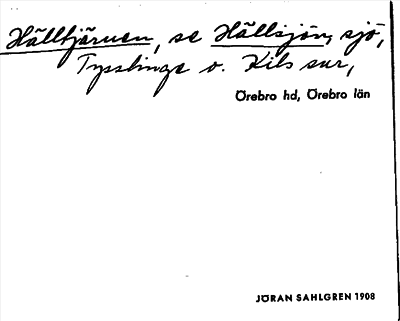 Hälltjärnen, se Hällsjön, sjö,
Tysslinge o. Kils snr,
Örebro hd, Örebro län
JÖRAN SAHLGREN 1908